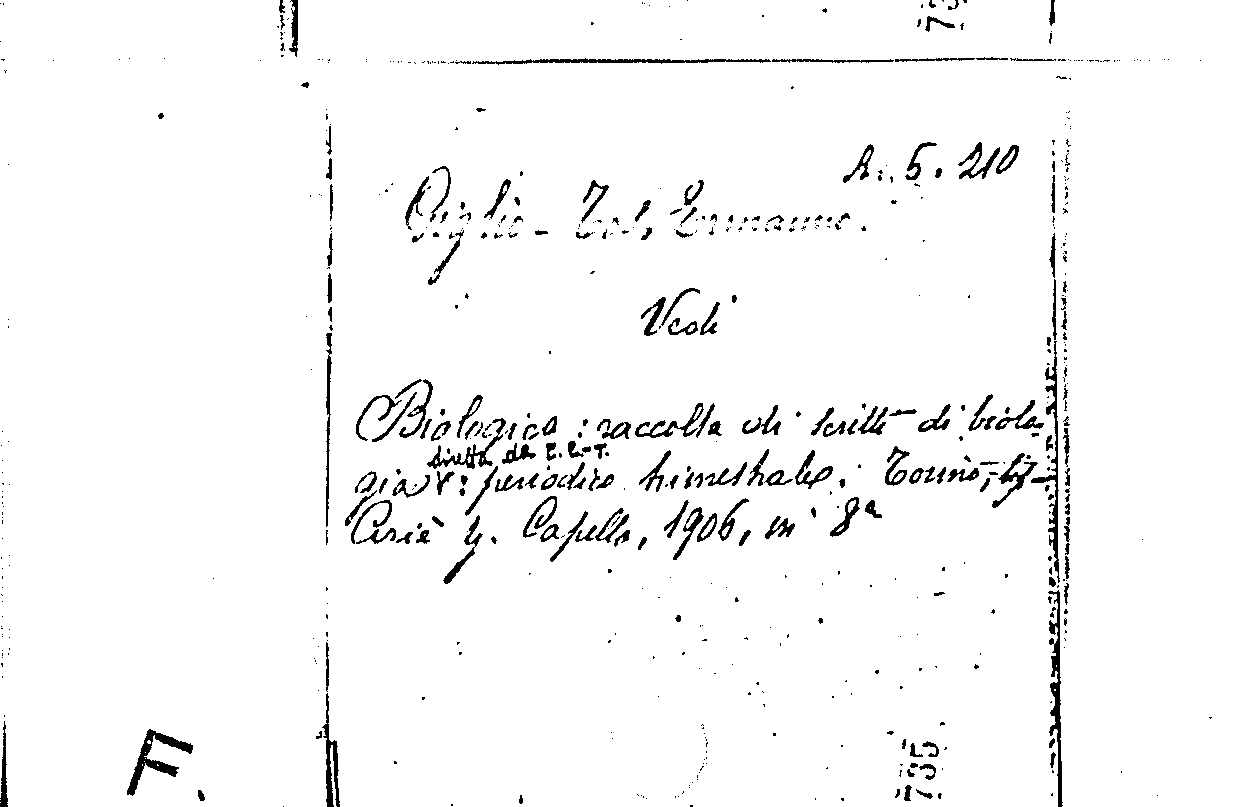 A. 5. 210
Giglio-Tos, Ermanno.
Vedi
Biologica: raccolta di scritti di biolo-
diretta da E. G.-T.
gia: periodico trimestrale. Torino,
Ciriè G. Capella, 1906, in 8ª
735
F.